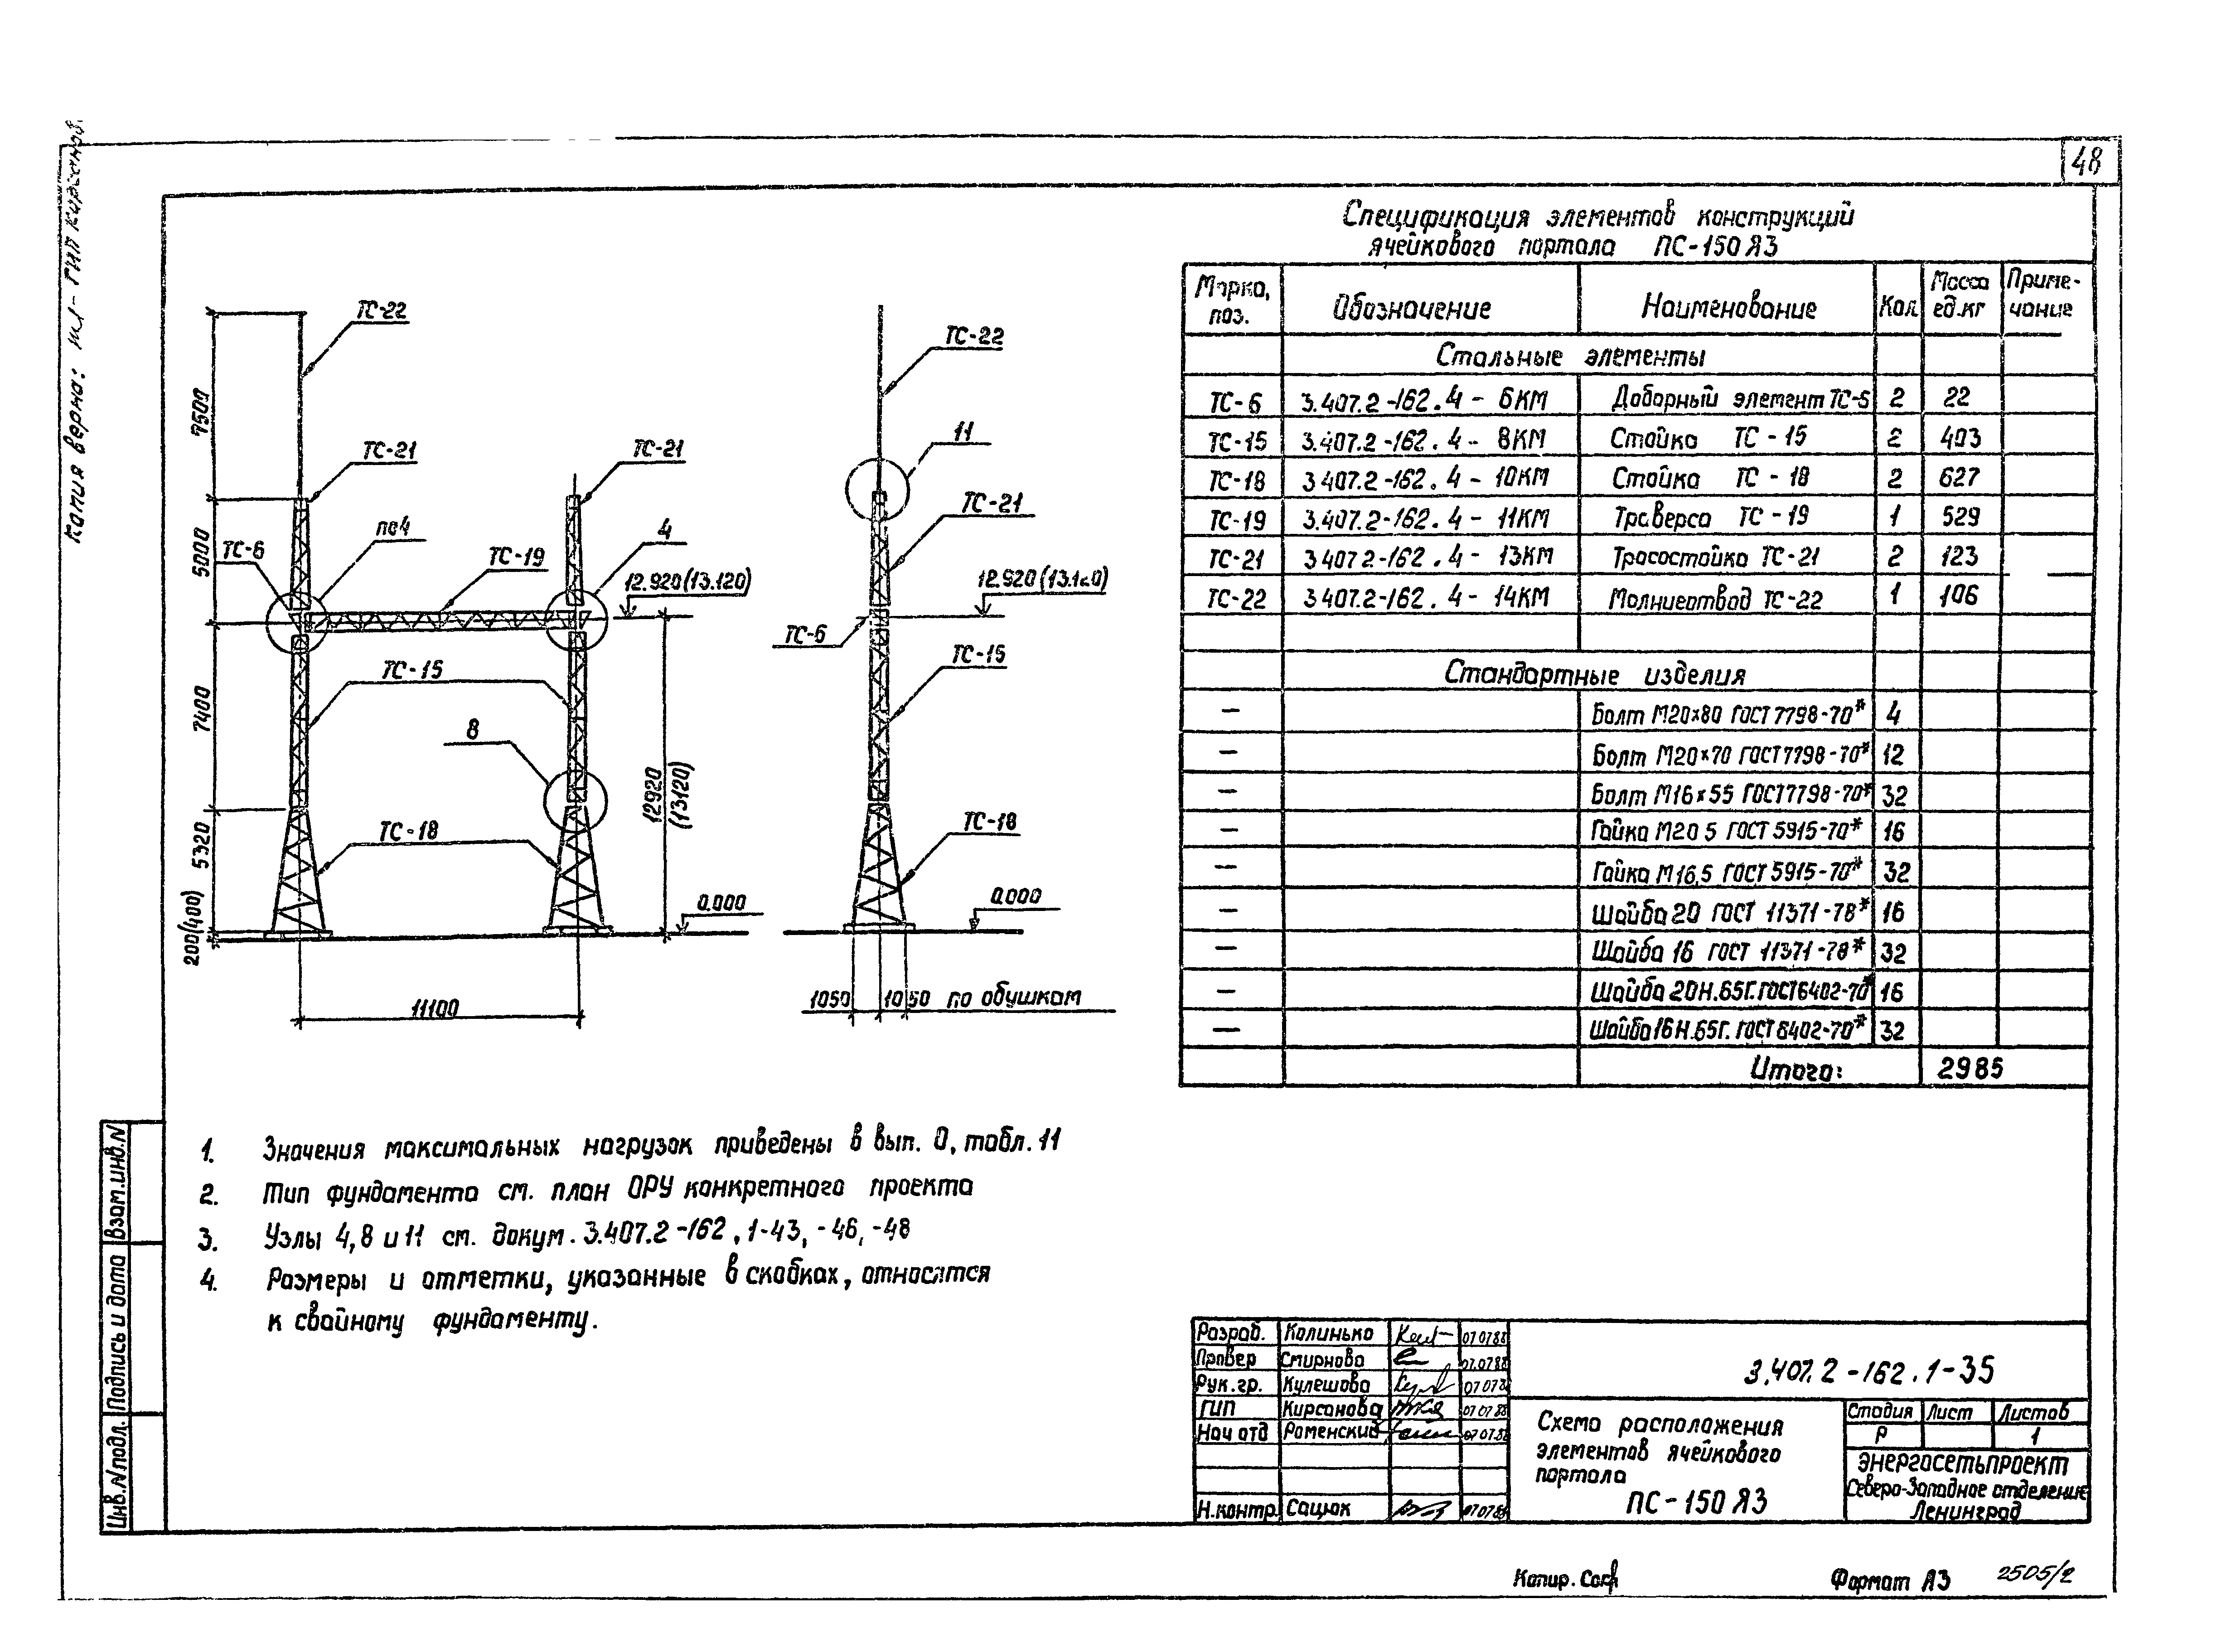 48
Копия верна:
ТС-22
ТС-21
по 4
ТС-6
ТС-19
ТС-21
4
12.920 (13.120)
ТС-15
8
ТС-18
7500
5000
7400
5320
200(400)
12920
(13120)
0.000
11100
ТС-22
11
ТС-21
12.920 (13.120)
ТС-6
ТС-15
ТС-18
0.000
1050 1050 по обушкам
Спецификация элементов конструкций
ячейкового портала ПС-150 Я3
Марка, поз. Обозначение Наименование Кол. Масса ед.кг Приме-чание
Стальные элементы
ТС-6 3.407.2-162.4-6КМ Доборный элемент ТС-6 2 22
ТС-15 3.407.2-162.4-8КМ Стойка ТС-15 2 403
ТС-18 3.407.2-162.4-10КМ Стойка ТС-18 2 627
ТС-19 3.407.2-162.4-11КМ Траверса ТС-19 1 529
ТС-21 3.407.2-162.4-13КМ Тросостойка ТС-21 2 123
ТС-22 3.407.2-162.4-14КМ Молниеотвод ТС-22 1 106
Стандартные изделия
— Болт М20×80 ГОСТ 7798-70* 4
— Болт М20×70 ГОСТ 7798-70* 12
— Болт М16×55 ГОСТ 7798-70* 32
— Гайка М20.5 ГОСТ 5915-70* 16
— Гайка М16.5 ГОСТ 5915-70* 32
— Шайба 20 ГОСТ 11371-78* 16
— Шайба 16 ГОСТ 11371-78* 32
— Шайба 20Н.65Г. ГОСТ 6402-70* 16
— Шайба 16Н.65Г. ГОСТ 6402-70* 32
Итого: 2985
1. Значения максимальных нагрузок приведены в вып. 0, табл. 11
2. Тип фундамента см. план ОРУ конкретного проекта
3. Узлы 4, 8 и 11 см. докум. 3.407.2-162.1-43, -46, -48
4. Размеры и отметки, указанные в скобках, относятся
к свайному фундаменту.
Взам.инв.N
Подпись и дата
Инв.N подл.
Разраб. Калинько 07.07.88
Провер Смирнова 07.07.88
Рук.гр. Кулешова 07.07.88
ГИП Кирсанова 07.07.88
Нач отд Роменский 07.07.88
Н.контр. Сацюк 07.07.88
3.407.2-162.1-35
Схема расположения
элементов ячейкового
портала
ПС-150 Я3
Стадия Лист Листов
Р 1
ЭНЕРГОСЕТЬПРОЕКТ
Северо-Западное отделение
Ленинград
Копир.
Формат А3
2505/2